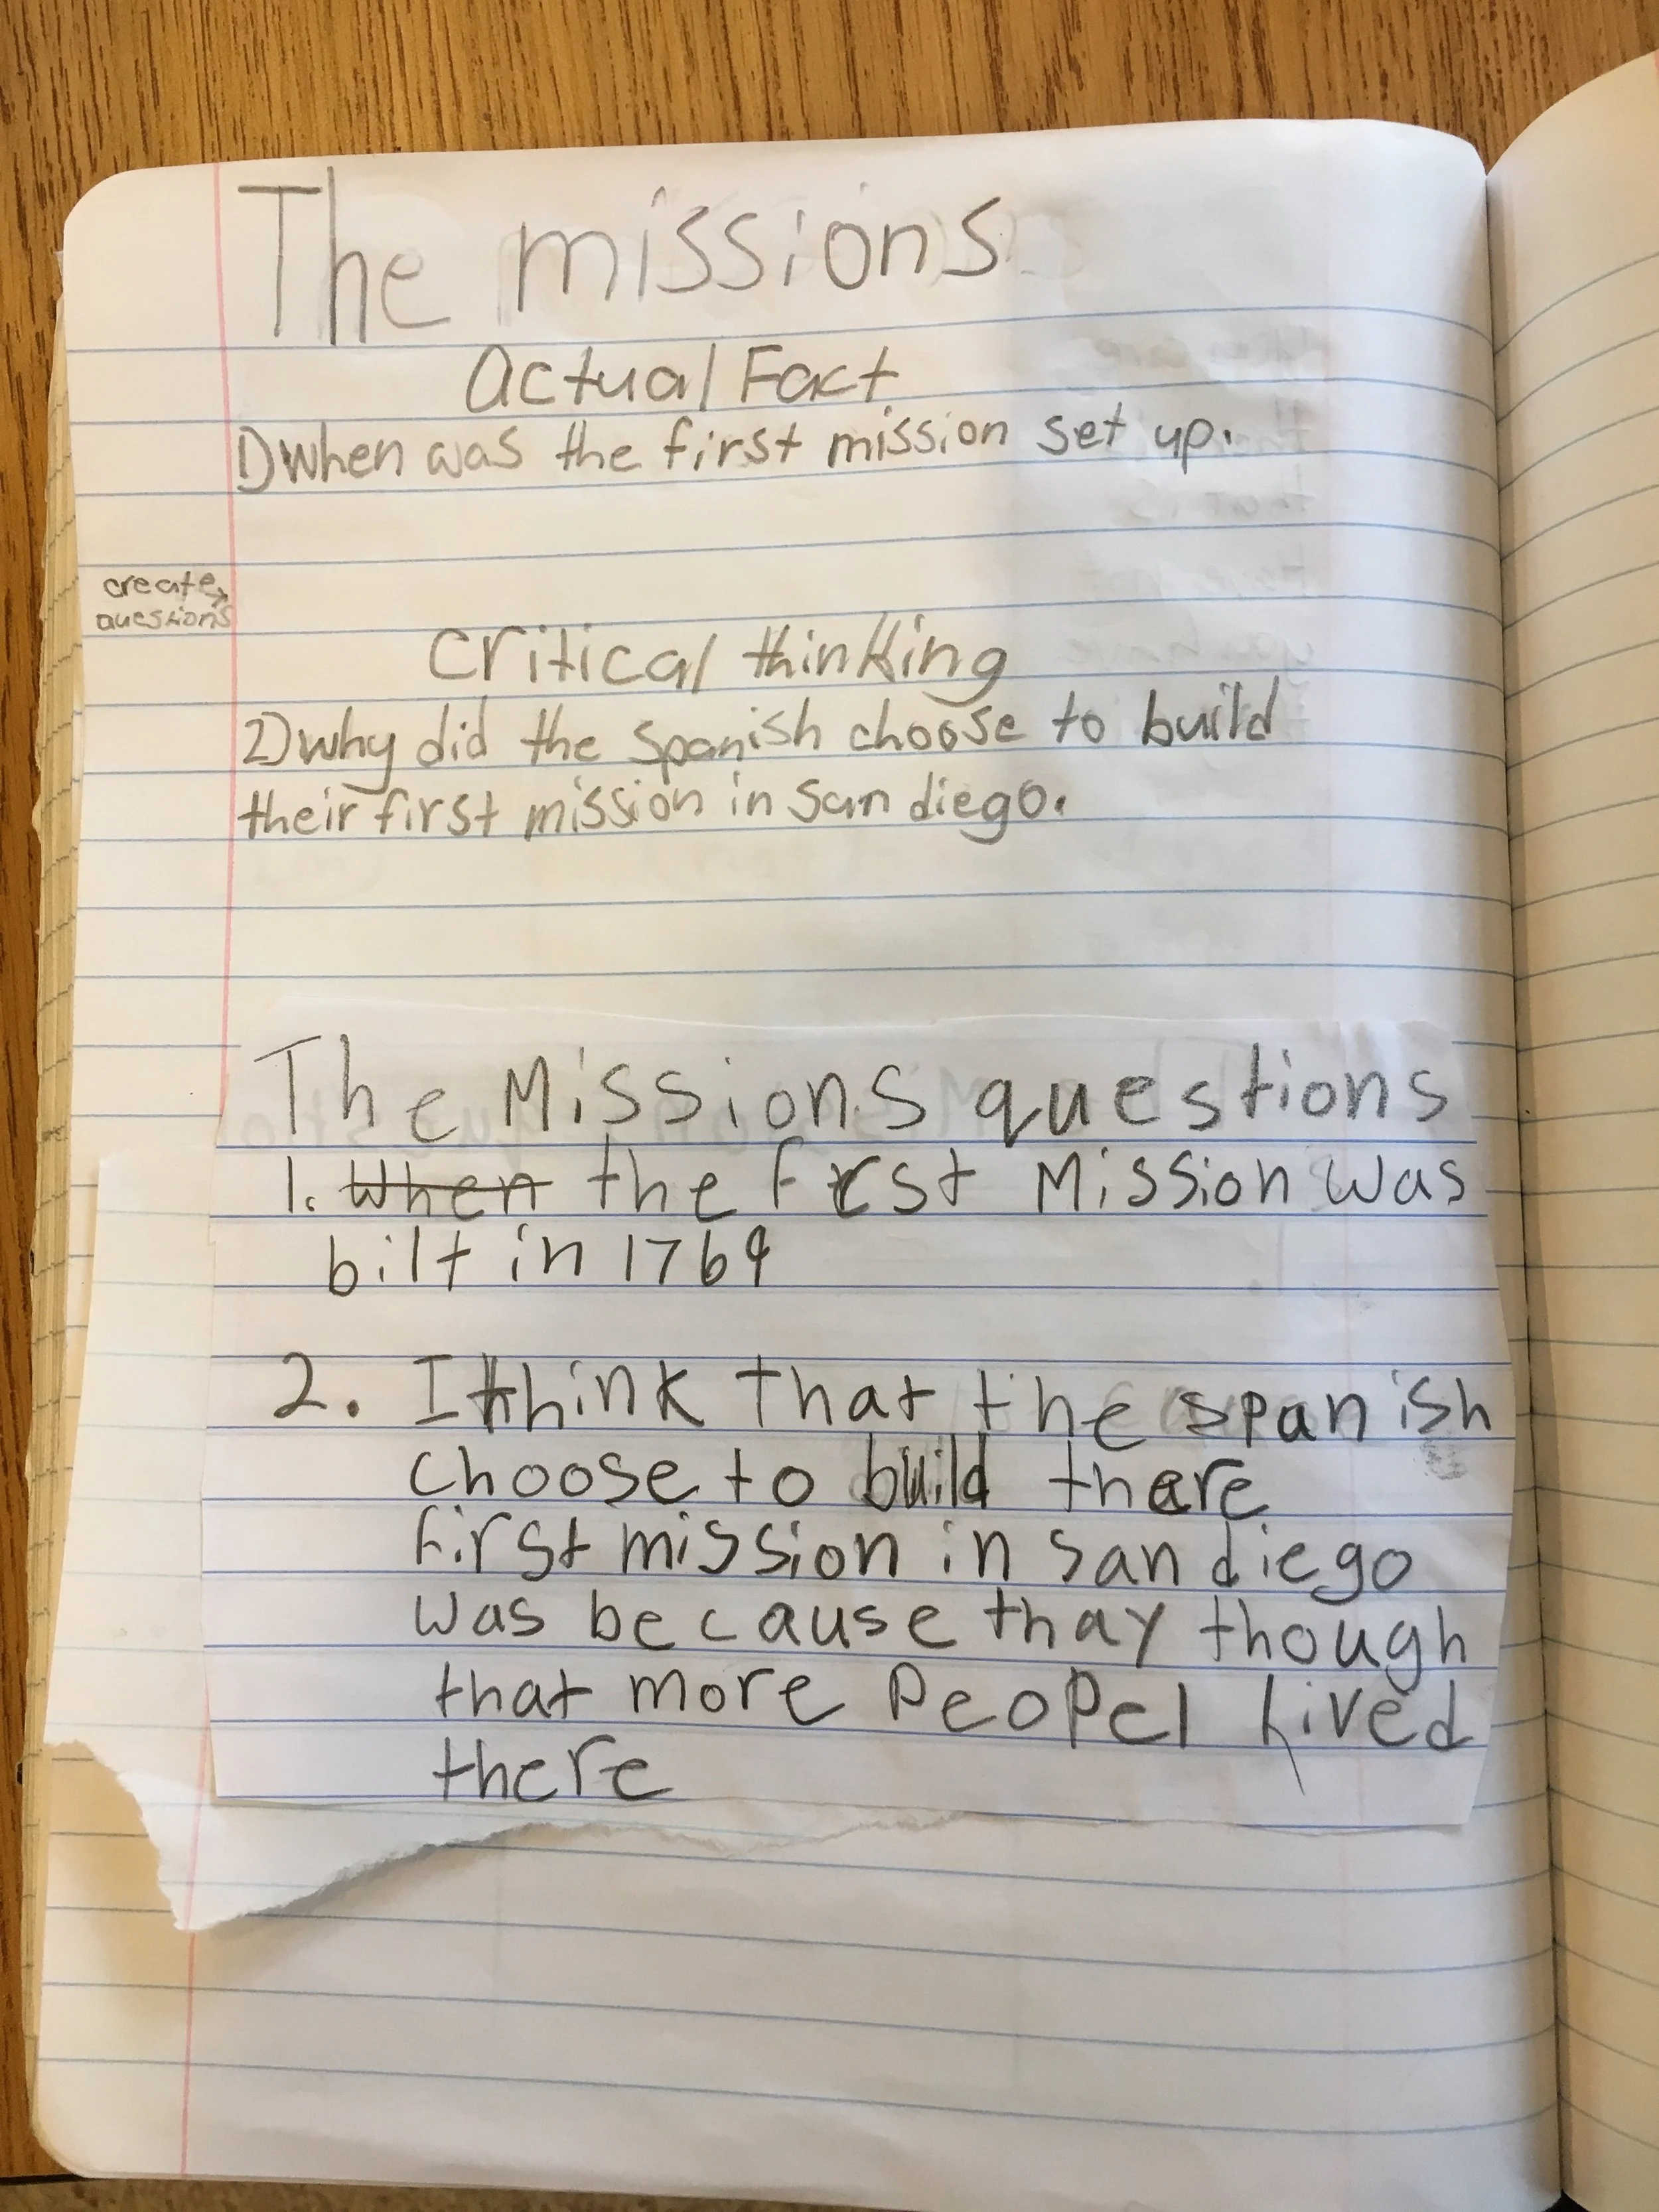 The missions
Actual Fact
1) when was the first mission set up.
create →
questions
Critical thinking
2) why did the Spanish choose to build
their first mission in San diego.
The Missions questions
1. ~~When~~ the first Mission was
bilt in 1769
2. I think that the spanish
choose to build there
first mission in san diego
was because thay though
that more Peopel lived
there